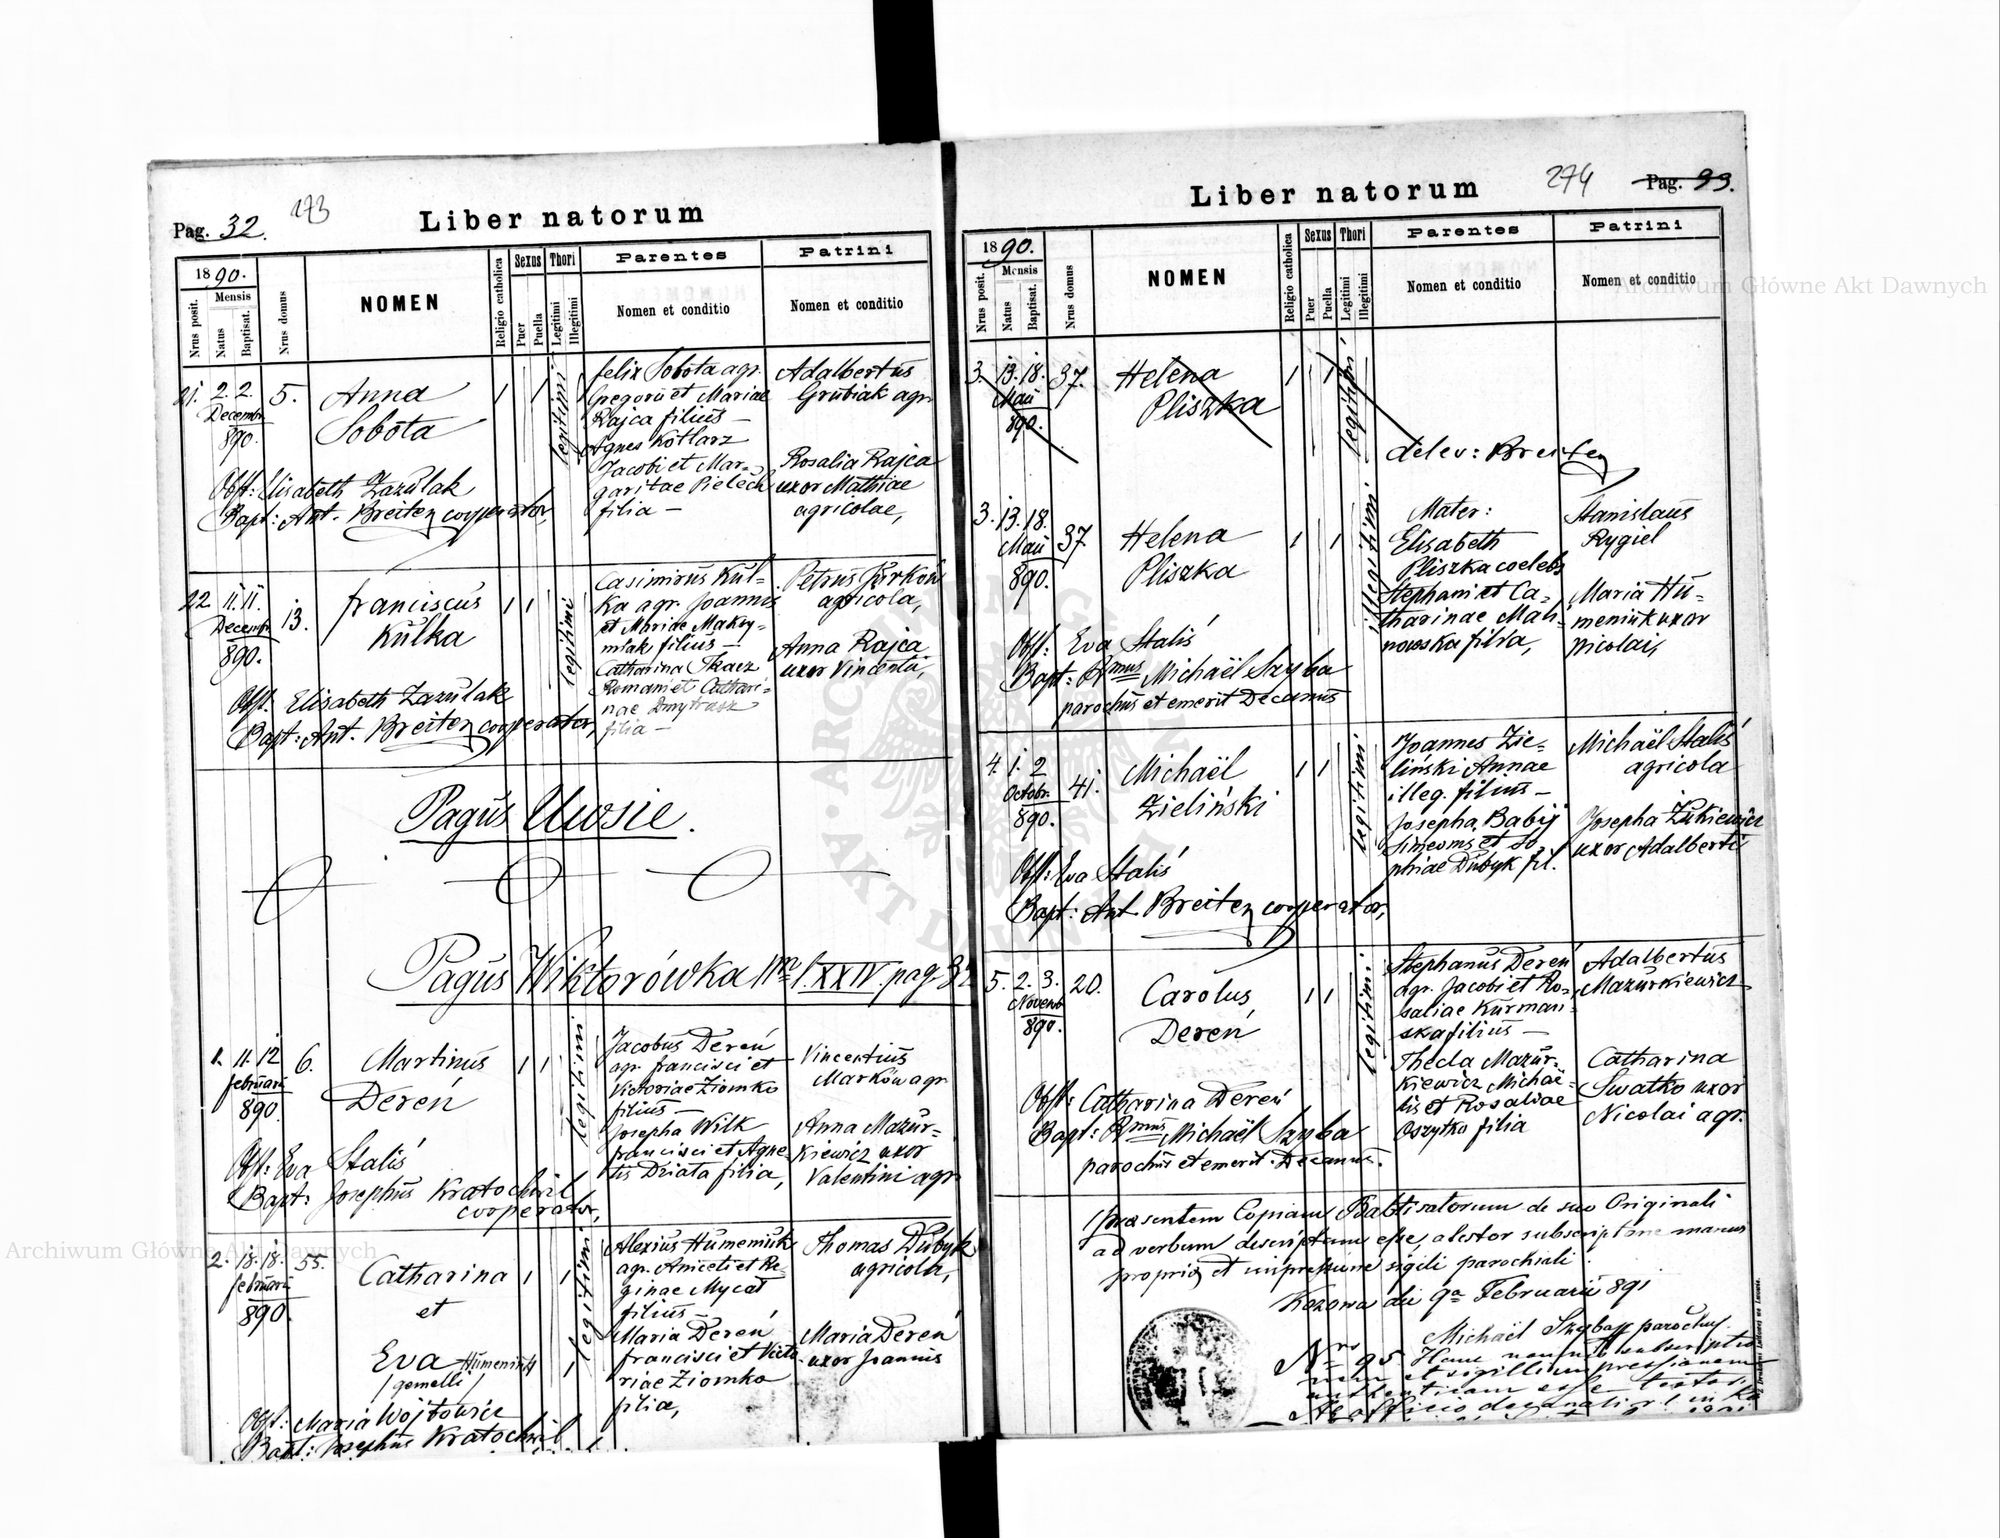 Pag. 32.
273
Liber natorum
1890.
Nrus posit.
Mensis
Natus
Baptisat.
Nrus domus
NOMEN
Religio catholica
Sexus
Puer
Puella
Thori
Legitimi
Illegitimi
Parentes
Nomen et conditio
Patrini
Nomen et conditio
21. 2. 2. 5. Anna 1 1
Decembr
890.
Sobota
legitimi
felix Sobota agr.
Gregorii et Mariae
Rajca filius —
Agnes Kotlarz
Jacobi et Mar-
garitae Pielech
filia —
Adalbertus
Grubiak agr.
Rosalia Rajca
uxor Mathiae
agricolae,
Obst: Elisabeth Zazulak
Bapt: Ant. Breiten cooperator,
22 11. 11. 13. franciscus 1 1
Decembr
890.
Kulka
legitimi
Casimirus Kul-
ka agr. Joannis
et Mariae Maksy-
miak filius —
Catharina Tkacz
Romani et Cathari-
nae Dmytrasz
filia —
Petrus Jurków
agricola,
Anna Rajca
uxor Vincentii,
Obst: Elisabeth Zazulak
Bapt: Ant. Breiten cooperator,
Pagus Uwsie.
Pagus Wiktorówka XXIV. pag. 32
1. 11. 12 6. Martinus 1 1
februarii
890
Dereń
legitimi
Jacobus Dereń
agr. francisci et
Victoriae Ziomko
filius —
Josepha Wilk
francisci et Agne-
tis Dziata filia,
Vincentius
Marków agr.
Anna Mazur-
kiewicz uxor
Valentini agr.
Obst: Eva Staliś
Bapt: Josephus Kratochwil
cooperator,
2. 18. 18. 55. Catharina 1 1
februarii
890
et
Eva Humeniuk 1
/gemelli/
legitimi
Alexius Humeniuk
agr. Aniceti et Re-
ginae Mycat
filius —
Maria Dereń
francisci et Victo-
riae Ziomko
filia,
Thomas Dubyk
agricola,
Maria Dereń
uxor Joannis
Obst: Maria Wojtowicz
Bapt: Josephus Kratochwil
Liber natorum
274
Pag. 33.
1890.
Nrus posit.
Mensis
Natus
Baptisat.
Nrus domus
NOMEN
Religio catholica
Sexus
Puer
Puella
Thori
Legitimi
Illegitimi
Parentes
Nomen et conditio
Patrini
Nomen et conditio
3. 13. 18. 37. Helena 1 1
Maii
890.
Pliszka
legitimi
delev: Breiten
3. 13. 18. 37 Helena 1 1
Maii
890.
Pliszka
illegitimi
Mater:
Elisabeth
Pliszka coelebs
Stephani et Ca-
tharinae Mali-
nowska filia,
Stanislaus
Rygiel
Maria Hu-
meniuk uxor
Nicolai,
Obst: Eva Staliś
Bapt: Rmus Michaël Szyba
parochus et emerit Decanus
4. 1. 2 41. Michaël 1 1
Octobr.
890.
Zieliński
legitimi
Joannes Zie-
liński Annae
illeg. filius —
Josepha Babij
Simeonis et So-
phiae Dubyk fil.
Michaël Staliś
agricola
Josepha Żukiewicz
uxor Adalberti
Obst: Eva Staliś
Bapt: Ant. Breiten cooperator,
5. 2. 3. 20. Carolus 1 1
Novemb
890.
Dereń
legitimi
Stephanus Dereń
agr. Jacobi et Ro-
saliae Kurman-
ska filius —
Thecla Mazur-
kiewicz Michaë-
lis et Rosaliae
Oszytko filia
Adalbertus
Mazurkiewicz
Catharina
Swatko uxor
Nicolai agr.
Obst: Catharina Dereń
Bapt: Rmus Michaël Szyba
parochus et emerit. Decanus.
Praesentem Copiam Babtisatorum de suo Originali
ad verbum descriptum esse, atestor subscriptione manus
propria et impressione sigili parochiali.
Kozowa die 9a Februarii 891
Michaël Szyba parochus.
Nrus 95 Hanc subscriptio
nem et sigilli impressionem
authenticam esse testor.
Ab officio decanali
Archiwum Główne Akt Dawnych
Archiwum Główne Akt Dawnych